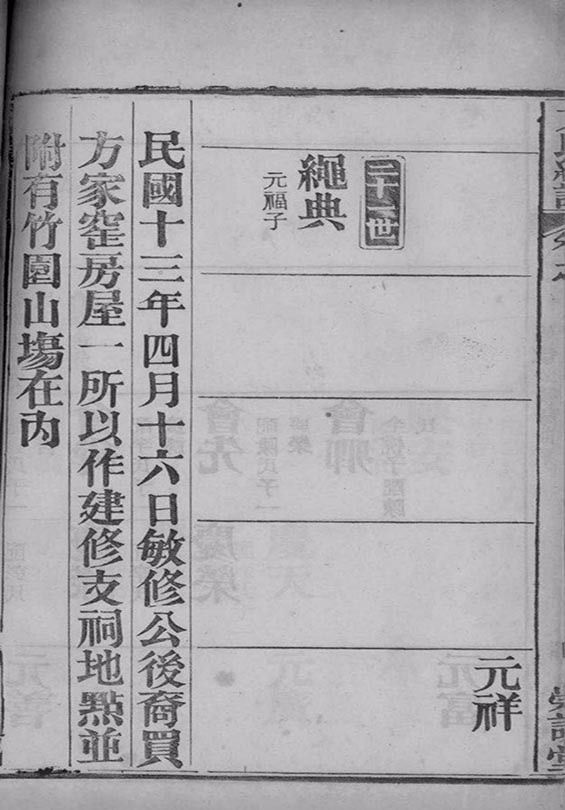 元祥
世
繩典
元福子
民國十三年四月十六日敏修公後裔買
方家窑房屋一所以作建修支祠地點並
附有竹園山塲在內